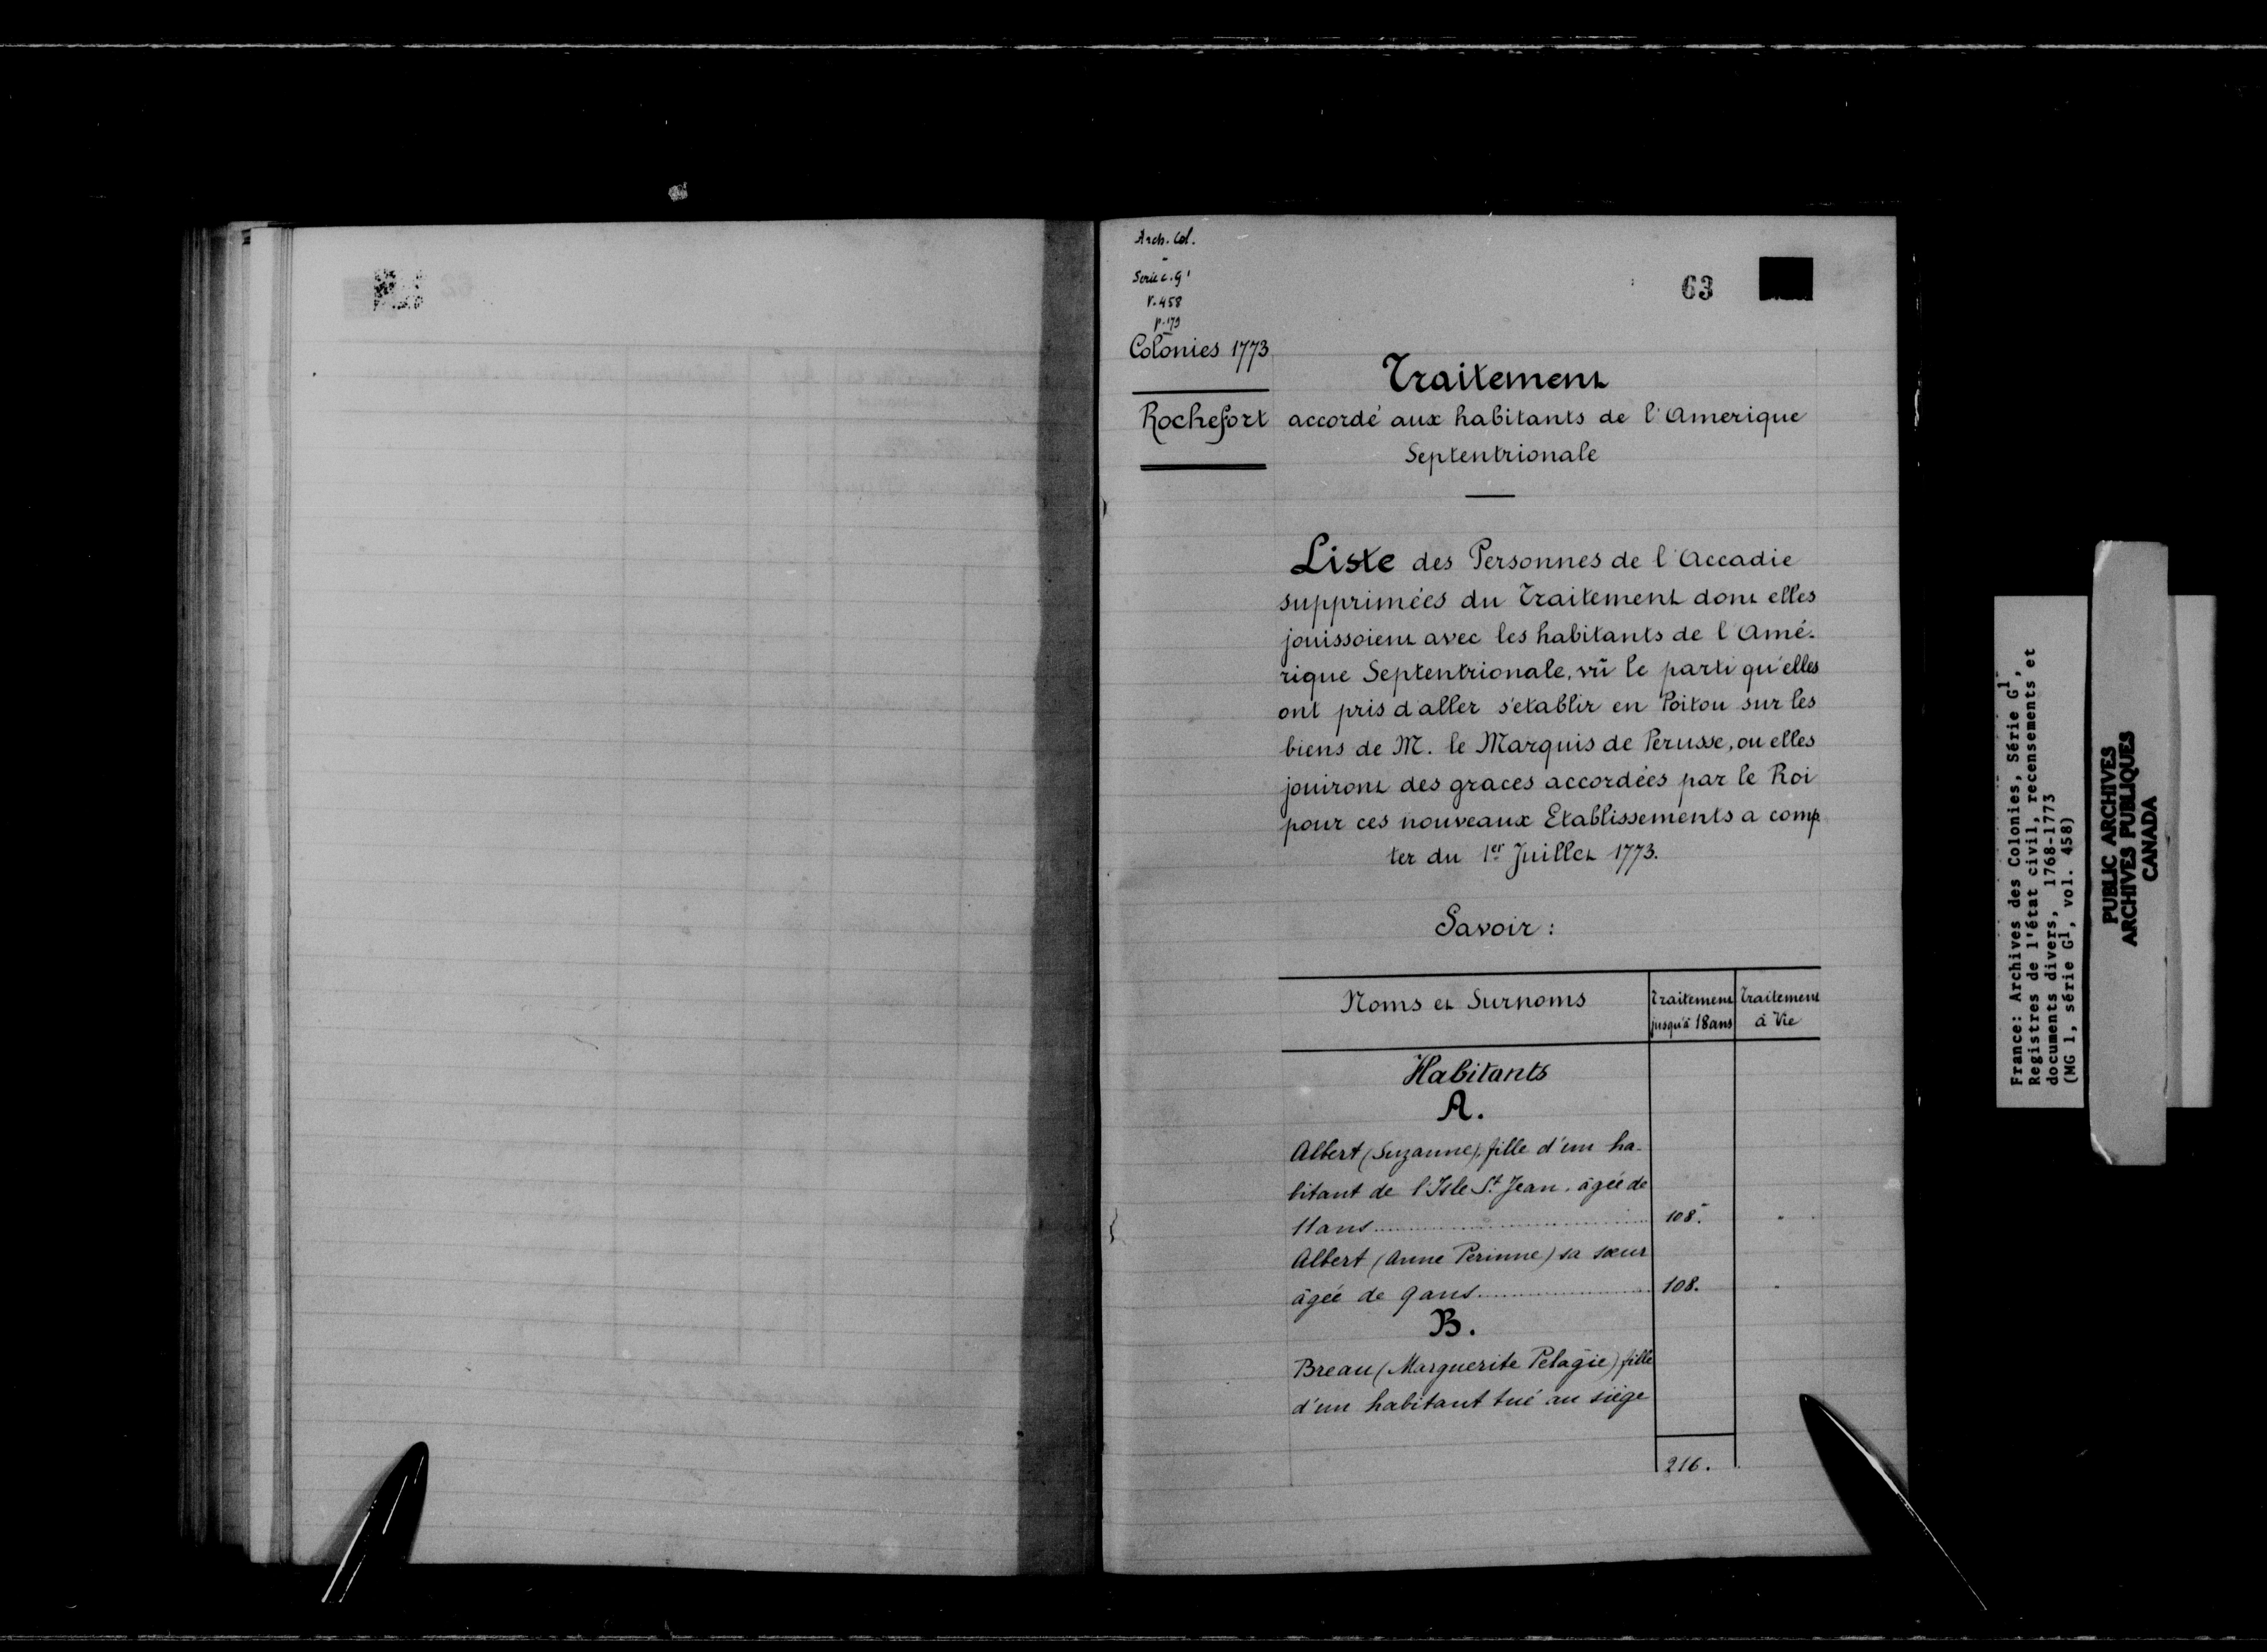 Arch. Col.
Serie c. G¹
V. 458
p. 179
Colonies 1773
63
Rochefort
Traitement
accordé aux habitants de l'Amerique
Septentrionale
Liste des Personnes de l'Accadie
supprimées du Traitement dont elles
jouissoient avec les habitants de l'Amé-
rique Septentrionale, vû le parti qu'elles
ont pris d'aller s'etablir en Poitou sur les
biens de M. le Marquis de Perusse, ou elles
jouiront des graces accordées par le Roi
pour ces nouveaux Etablissements a comp
ter du 1er Juillet 1773.
Savoir :
Noms et Surnoms
Traitement jusqu'à 18 ans
Traitement à Vie
Habitants
A.
Albert (Suzanne), fille d'un ha-
bitant de l'Isle St. Jean, âgée de
11 ans 108.
Albert (Anne Perinne) sa sœur
âgée de 9 ans 108.
B.
Breau (Marguerite Pelagie) fille
d'un habitant tué au siège
216.
France: Archives des Colonies, Série G1,
Registres de l'état civil, recensements et
documents divers, 1768-1773
(MG 1, série G1, vol. 458)
PUBLIC ARCHIVES
ARCHIVES PUBLIQUES
CANADA